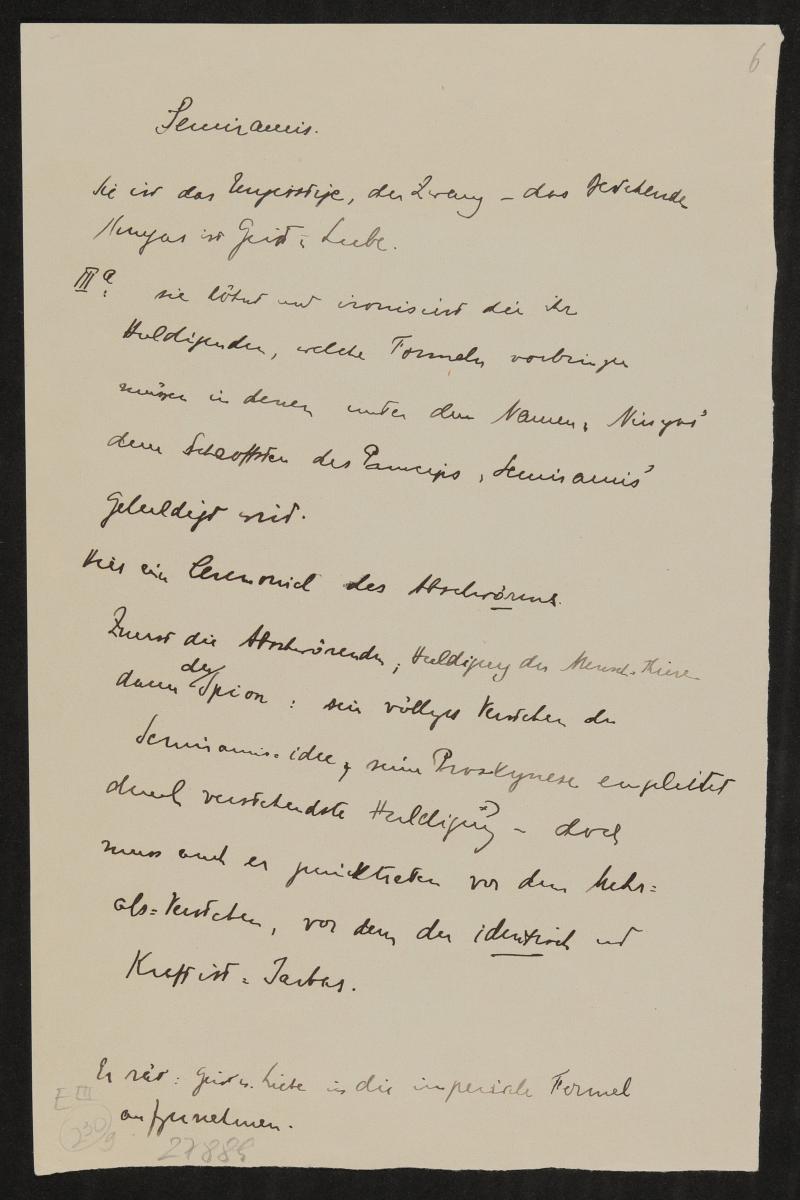 6
Semiramis.
Sie ist das Ungeistige, der Zwang – das Bestehende
Ninyas ist Geist u. Liebe.
III a. sie höhnt und ironisiert die ihr
Huldigenden, welche Formeln vorbringen
müssen in denen unter dem Namen „Ninyas"
dem Schroffsten des Princips „Semiramis"
gehuldigt wird.
Hier ein Ceremoniel des Abschwörens.
Zuerst die Abschwörenden, Huldigung der Mensch-Thiere
dann der Spion: sein völliges Verstehen der
Semiramis-idee, seine Proskynese begleitet
durch verstehendste Huldigung – doch
muss auch er zurücktreten vor dem Mehr=
als=Verstehen, vor dem der identisch ist
Kraft ist =
Er rät: Geist u. Liebe in die imperiale Formel
aufzunehmen.
E III
230/9